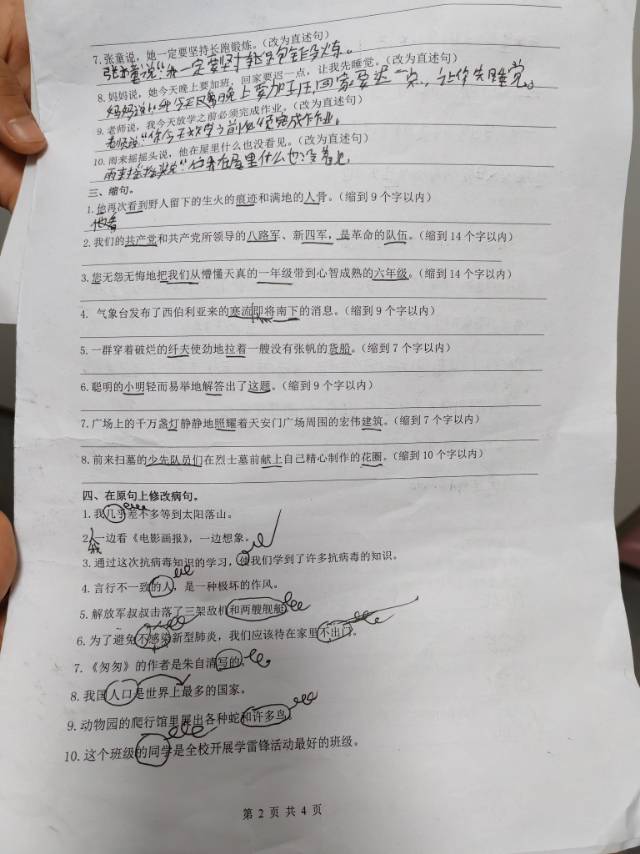 7. 张童说，她一定要坚持长跑锻炼。（改为直述句）
张童说：“我一定要坚持长跑锻炼。
8. 妈妈说，她今天晚上要加班，回家要迟一点，让我先睡觉。（改为直述句）
妈妈说：“我今天晚上要加班回家要迟一点，让你先睡觉。
9. 老师说，我今天放学之前必须完成作业。（改为直述句）
老师说：“你今天放学之前必须完成作业。
10. 雨来摇摇头说，他在屋里什么也没看见。（改为直述句）
雨来摇摇头说：“我在屋里什么也没看见。
三、缩句。
1. 他再次看到野人留下的生火的痕迹和满地的人骨。（缩到 9 个字以内）
他看
2. 我们的共产党和共产党所领导的八路军、新四军，是革命的队伍。（缩到 14 个字以内）
3. 您无怨无悔地把我们从懵懂天真的一年级带到心智成熟的六年级。（缩到 14 个字以内）
4. 气象台发布了西伯利亚来的寒流即将南下的消息。（缩到 9 个字以内）
5. 一群穿着破烂的纤夫使劲地拉着一艘没有张帆的货船。（缩到 7 个字以内）
6. 聪明的小明轻而易举地解答出了这题。（缩到 9 个字以内）
7. 广场上的千万盏灯静静地照耀着天安门广场周围的宏伟建筑。（缩到 7 个字以内）
8. 前来扫墓的少先队员们在烈士墓前献上自己精心制作的花圈。（缩到 10 个字以内）
四、在原句上修改病句。
1. 我几乎差不多等到太阳落山。
2. 一边看《电影画报》，一边想象。
我
3. 通过这次抗病毒知识的学习，使我们学到了许多抗病毒的知识。
4. 言行不一致的人，是一种极坏的作风。
5. 解放军叔叔击落了三架敌机和两艘舰艇。
6. 为了避免不感染新型肺炎，我们应该待在家里不出门。
7. 《匆匆》的作者是朱自清写的。
8. 我国人口是世界上最多的国家。
9. 动物园的爬行馆里展出各种蛇和许多鸟。
10. 这个班级的同学是全校开展学雷锋活动最好的班级。
第 2 页 共 4 页